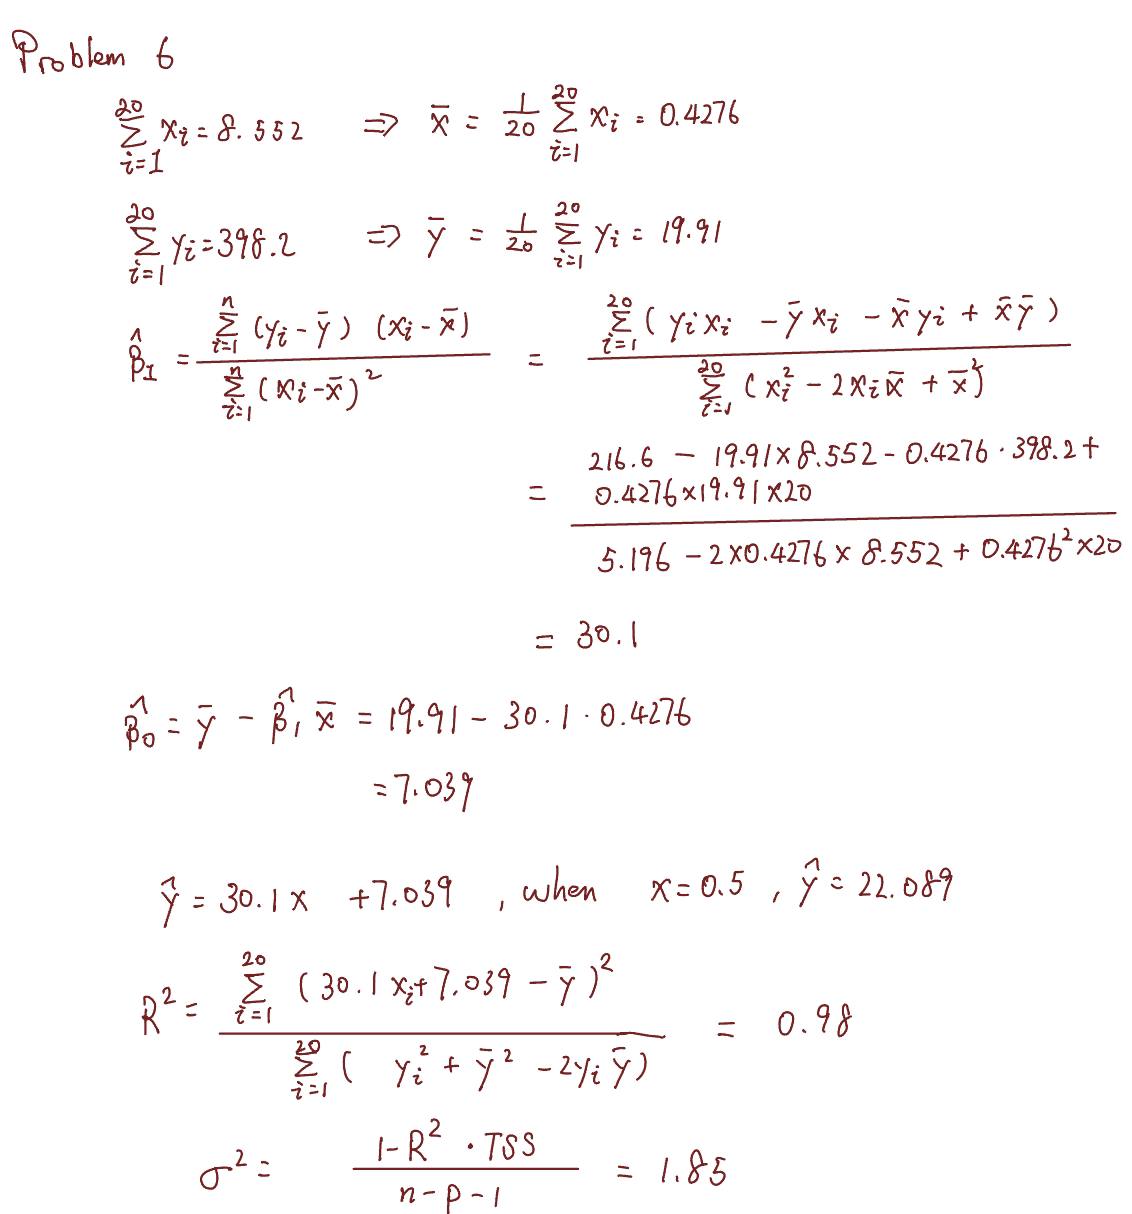 Problem 6
$\sum_{i=1}^{20} x_i = 8.552 \Rightarrow \bar{x} = \frac{1}{20} \sum_{i=1}^{20} x_i = 0.4276$
$\sum_{i=1}^{20} y_i = 398.2 \Rightarrow \bar{y} = \frac{1}{20} \sum_{i=1}^{20} y_i = 19.91$
$\hat{\beta}_1 = \frac{\sum_{i=1}^{n} (y_i - \bar{y}) (x_i - \bar{x})}{\sum_{i=1}^{n} (x_i - \bar{x})^2} = \frac{\sum_{i=1}^{20} (y_i x_i - \bar{y} x_i - \bar{x} y_i + \bar{x}\bar{y})}{\sum_{i=1}^{20} (x_i^2 - 2x_i\bar{x} + \bar{x}^2)}$
$= \frac{216.6 - 19.91 \times 8.552 - 0.4276 \cdot 398.2 + 0.4276 \times 19.91 \times 20}{5.196 - 2 \times 0.4276 \times 8.552 + 0.4276^2 \times 20}$
$= 30.1$
$\hat{\beta}_0 = \bar{y} - \hat{\beta}_1 \bar{x} = 19.91 - 30.1 \cdot 0.4276$
$= 7.039$
$\hat{y} = 30.1x + 7.039$, when $x = 0.5$, $\hat{y} = 22.089$
$R^2 = \frac{\sum_{i=1}^{20} (30.1 x_i + 7.039 - \bar{y})^2}{\sum_{i=1}^{20} (y_i^2 + \bar{y}^2 - 2y_i \bar{y})} = 0.98$
$\sigma^2 = \frac{1 - R^2 \cdot TSS}{n - p - 1} = 1.85$